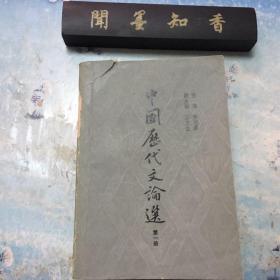 聞墨知香
中國歷代文論選
第一册